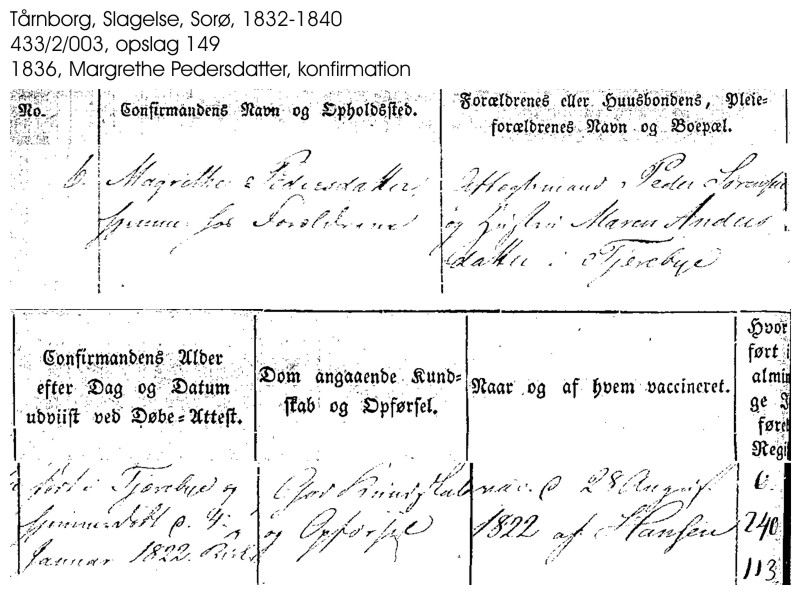 Tårnborg, Slagelse, Sorø, 1832-1840
433/2/003, opslag 149
1836, Margrethe Pedersdatter, konfirmation
No.
Confirmandens Navn og Opholdssted.
Forældrenes eller Huusbondens, Pleie=
forældrenes Navn og Boepæl.
6.
Magrethe Pedersdatter
hos Forældrene
Peder Sørensen
og Hustru Maren Anders
datter i Tjerebye
Confirmandens Alder
efter Dag og Datum
udviist ved Døbe=Attest.
Dom angaaende Kund=
skab og Opførsel.
Naar og af hvem vaccineret.
Hvor
ført i
almin
ge J
føre
Regi
født i Tjerebye og
d. 4
Januar 1822.
God Kundskab
og Opførsel
vac. d 28 August
1822 af Hansen
6.
240
113